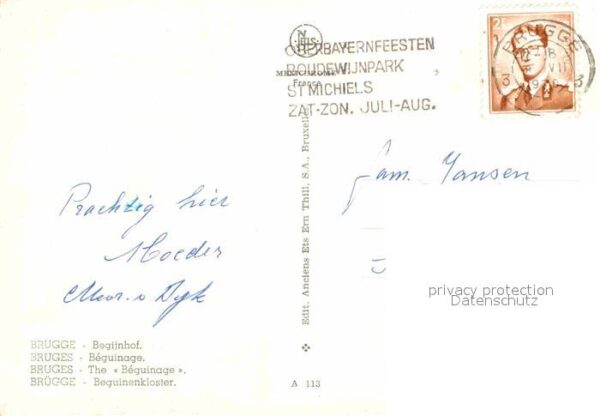 NELS
OBERBAYERNFEESTEN
BOUDEWIJNPARK
ST MICHIELS
ZAT-ZON. JULI-AUG.
MEXICHROME
France
BRUGGE
3 3
2F
Fam. Jansen
Prachtig hier
Moeder
Mevr. v Dyk
Edit. Anciens Ets Ern Thill, S.A., Bruxelles
privacy protection
Datenschutz
BRUGGE - Begijnhof.
BRUGES - Béguinage.
BRUGES - The « Béguinage ».
BRÜGGE - Beguinenkloster.
A 113